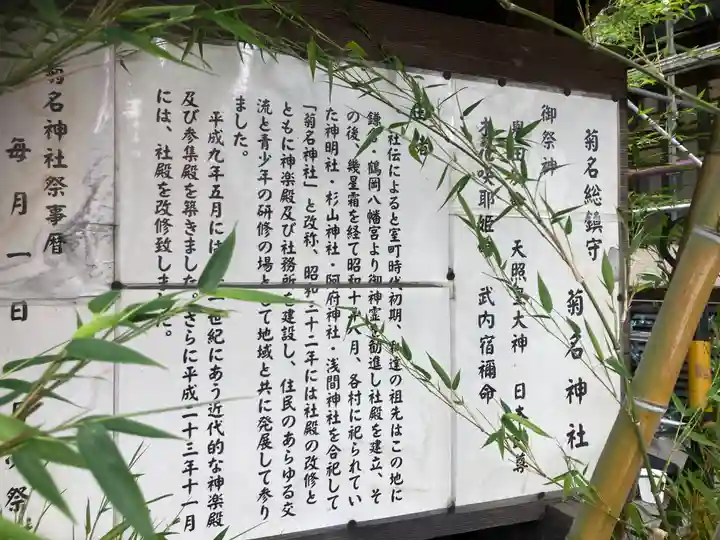 菊名総鎮守 菊名神社
御祭神
天照皇大神 日本 尊
咲耶姫 武内宿禰命
由
社伝によると室町時代初期、 達の祖先はこの地に
鎌 ・鶴岡八幡宮より御神霊 勧進し社殿を建立、そ
の後、幾星霜を経て昭和十 月、各村に祀られてい
た神明社・杉山神社・阿府神社・浅間神社を合祀して
「菊名神社」と改称、昭和二十二年には社殿の改修と
ともに神楽殿及び社務所 建設し、住民のあらゆる交
流と青少年の研修の場 して地域と共に発展して参り
ました。
平成九年五月には 一世紀にあう近代的な神楽殿
及び参集殿を築きました。さらに平成二十三年十一月
には、社殿を改修致しました。
菊名神社祭事暦
毎月一日 祭